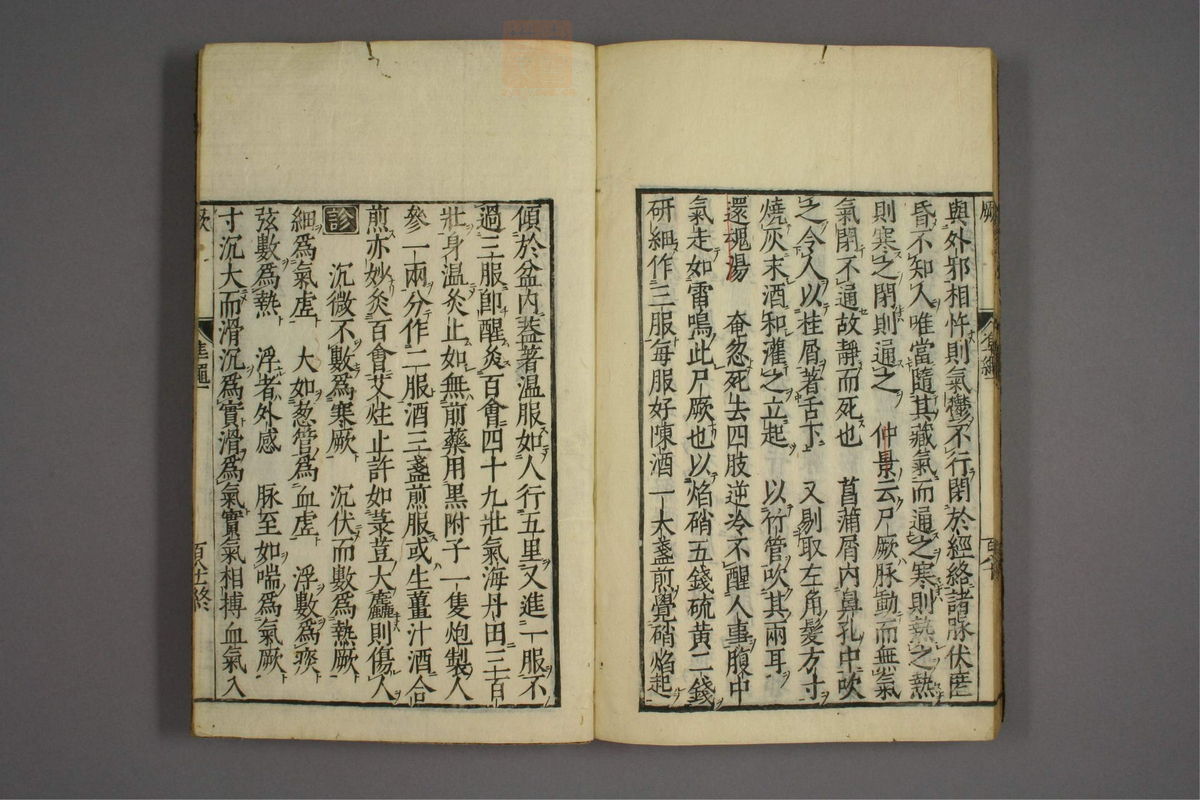 與外邪相忤則氣欝不行閉於經絡諸脉伏匿
昏不知人唯當隨其藏氣而通之寒則熱之熱
則寒之閉則通之　仲景云尸厥脉動而無氣
氣閉不通故靜而死也　菖蒲屑內鼻孔中吹
之令人以桂屑著舌下　又剔取左角髮方寸
燒灰末酒和灌之立起　以竹管吹其兩耳
還魂湯　奄忽死去四肢逆冷不醒人事腹中
氣走如雷鳴此尸厥也以焰硝五錢硫黃二錢
研細作三服每服好陳酒一大盞煎覺硝焰起
傾於盆內蓋著温服如人行五里又進一服不
過三服卽醒灸百會四十九壯氣海丹田三百
壯身温灸止如無前藥用黑附子一隻炮製人
參一兩分作二服酒三盞煎服或生薑汁酒合
煎亦妙灸百會艾炷止許如菉荳大麄則傷人
診　沉微不數為寒厥　沉伏而數為熱厥
細為氣虛　大如葱管為血虛　浮數為痰
弦數為熱　浮者外感　脉至如喘為氣厥
寸沉大而滑沉為實滑為氣實氣相搏血氣入